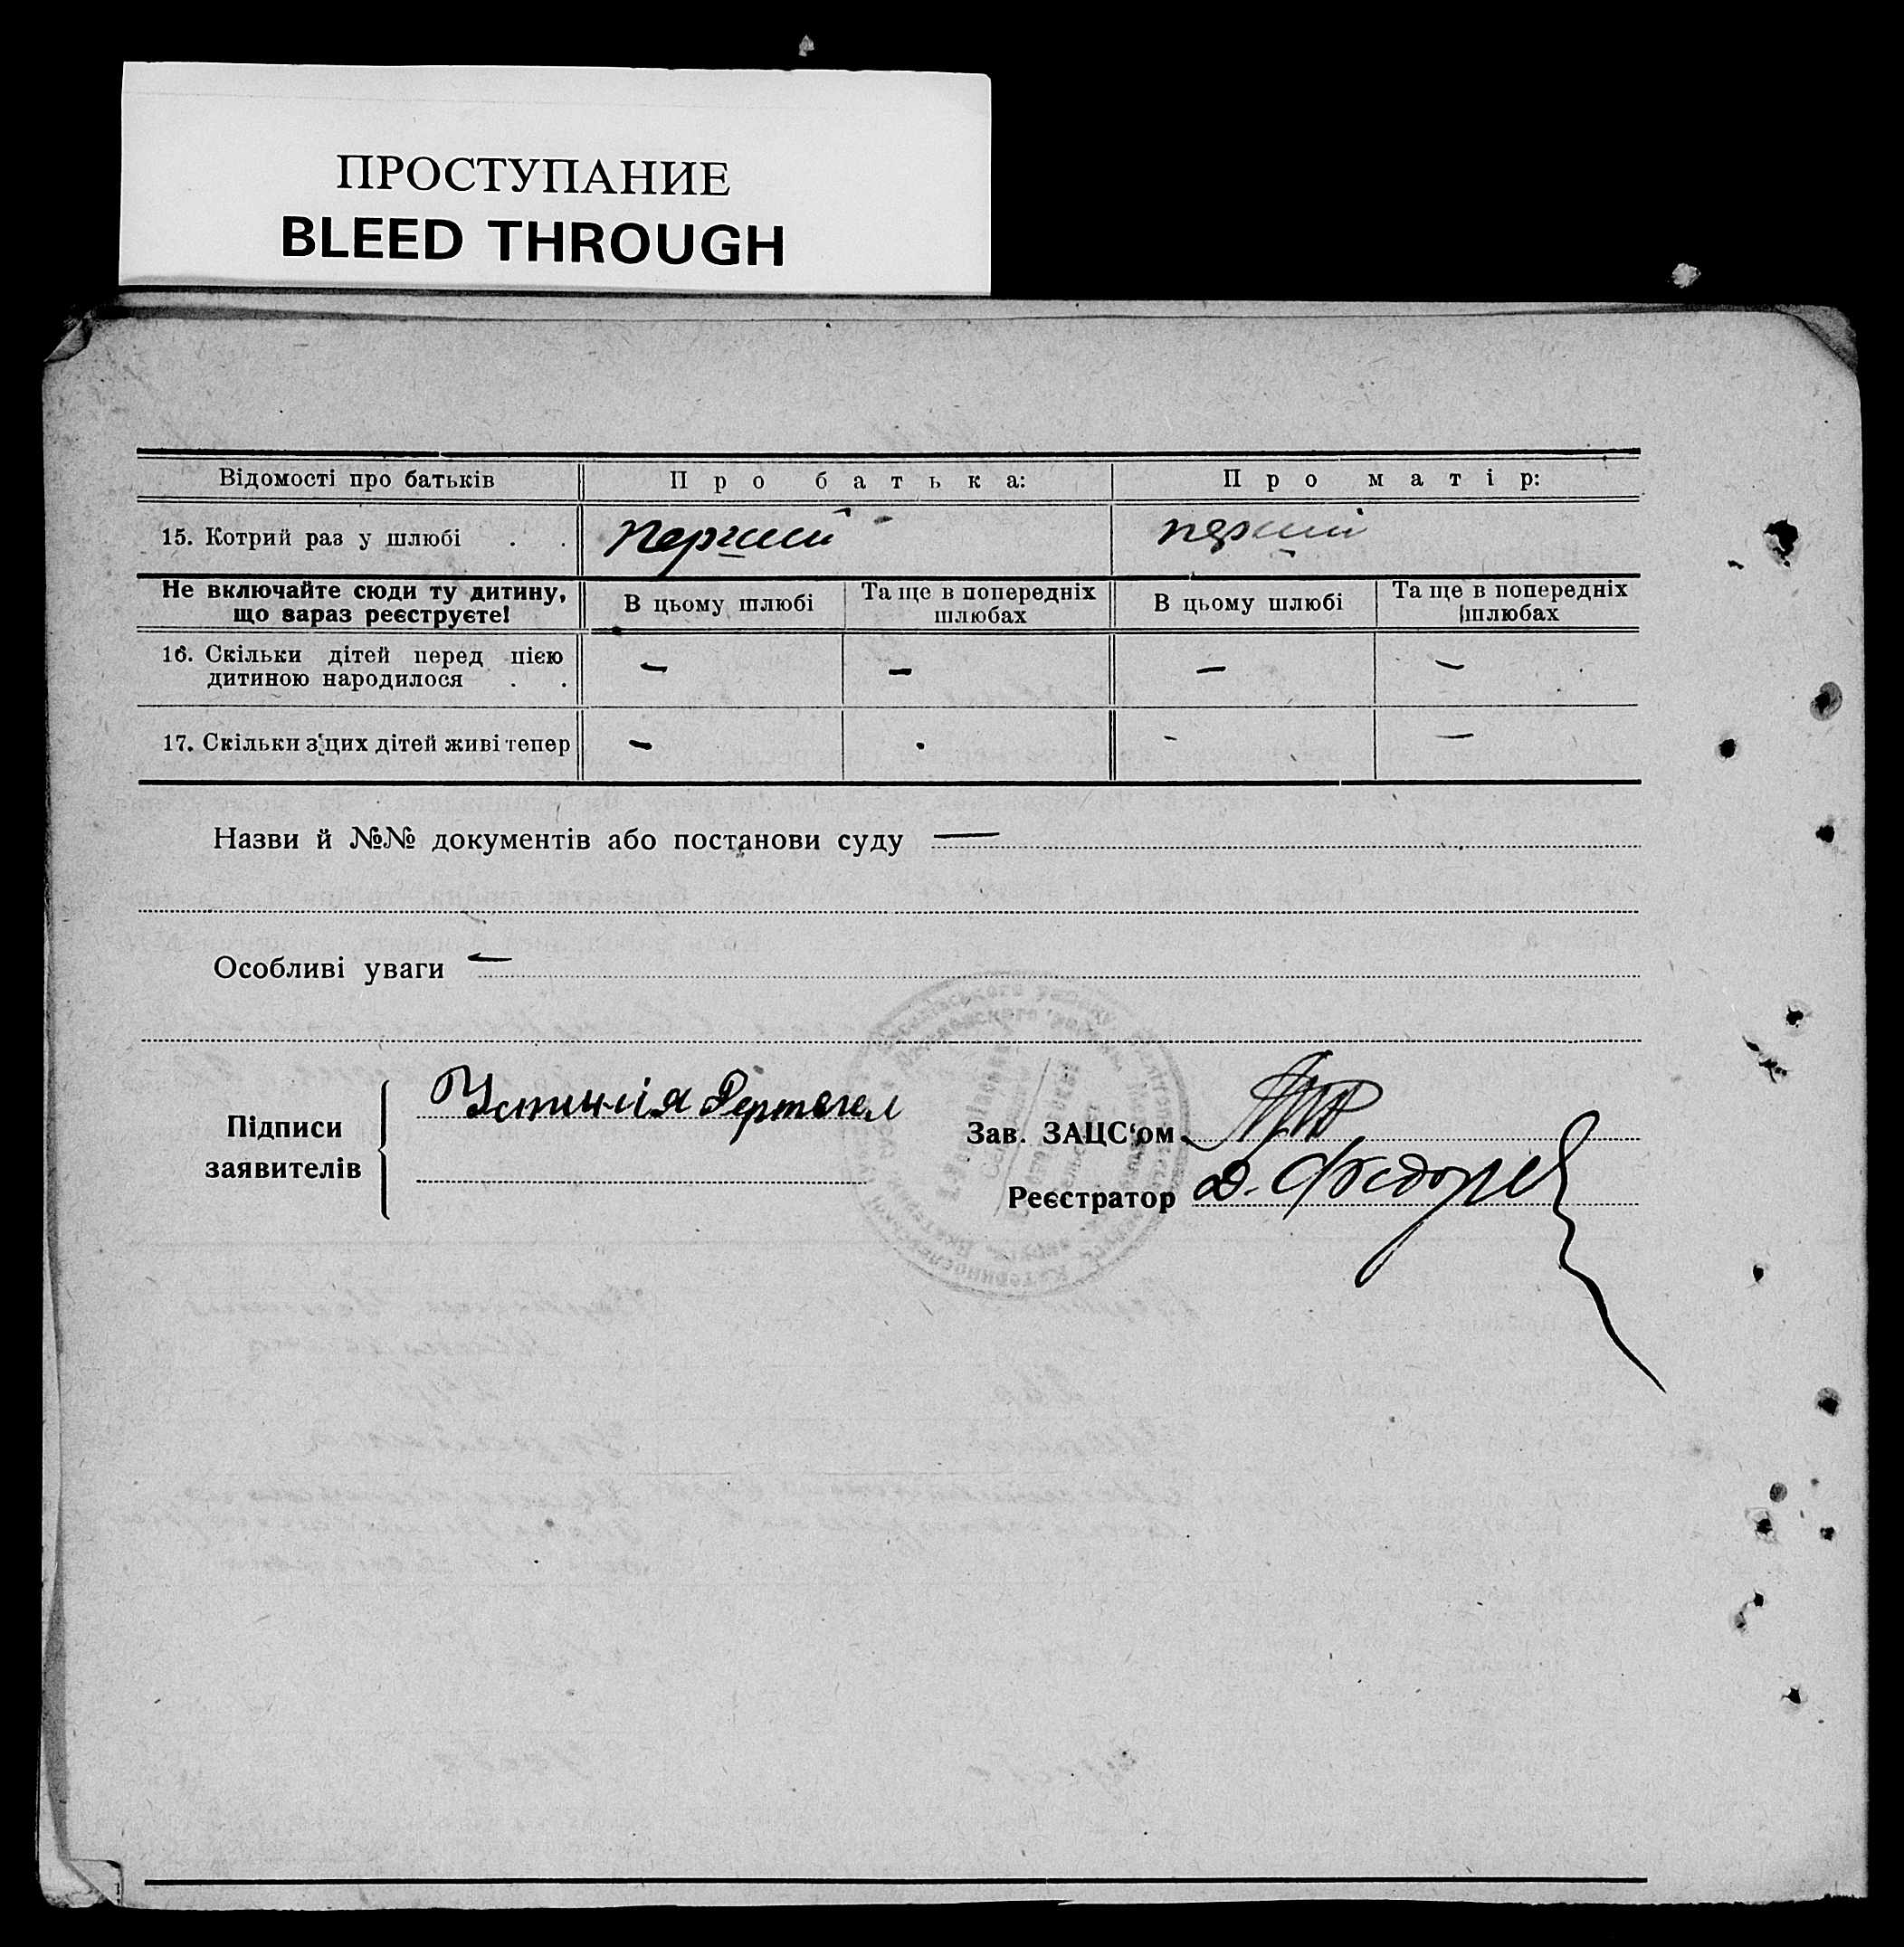 ПРОСТУПАНИЕ
BLEED THROUGH
Відомості про батьків Про батька: Про матір:
15. Котрий раз у шлюбі . . перший перший
Не включайте сюди ту дитину, що зараз реєструєте! В цьому шлюбі Та ще в попередніх шлюбах В цьому шлюбі Та ще в попередніх шлюбах
16. Скільки дітей перед цією дитиною народилося . . — — — —
17. Скільки з цих дітей живі тепер — - - —
Назви й №№ документів або постанови суду —
Особливі уваги —
Підписи заявителів
Зав. ЗАЦС‘ом
Реєстратор Д.